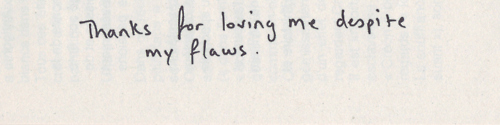 Thanks for loving me despite
my flaws.